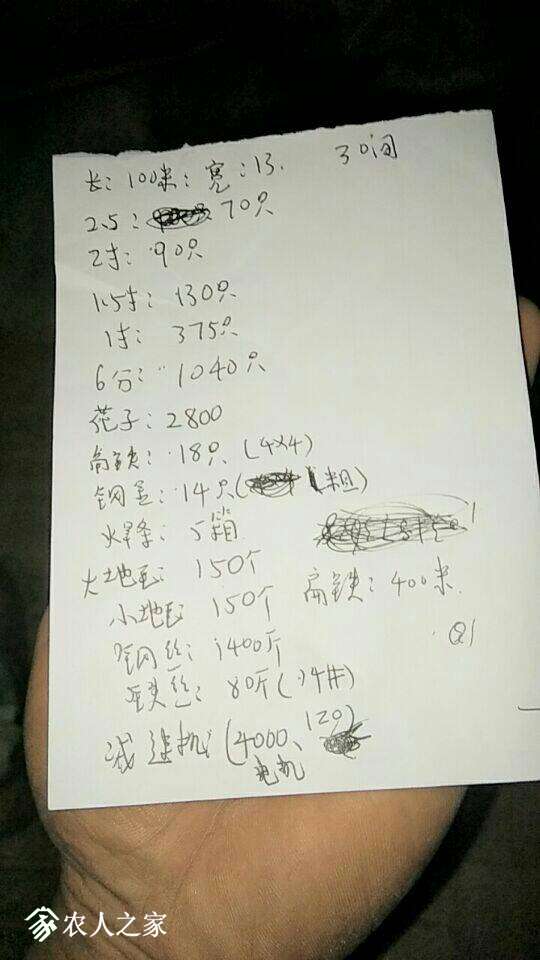 长：100米：宽：13. 30间
2.5：70只
2寸：90只
1.5寸：130只
1寸：375只
6分：1040只
花子：2800
角铁：18只（4×4）
钢金：14只（1粗）
火焊条：5箱
大地 150个
小地 150个 扁铁：400米.
钢丝：1400斤
铁丝：80斤（14#）
减速机：（4000、120）
电机
农人之家